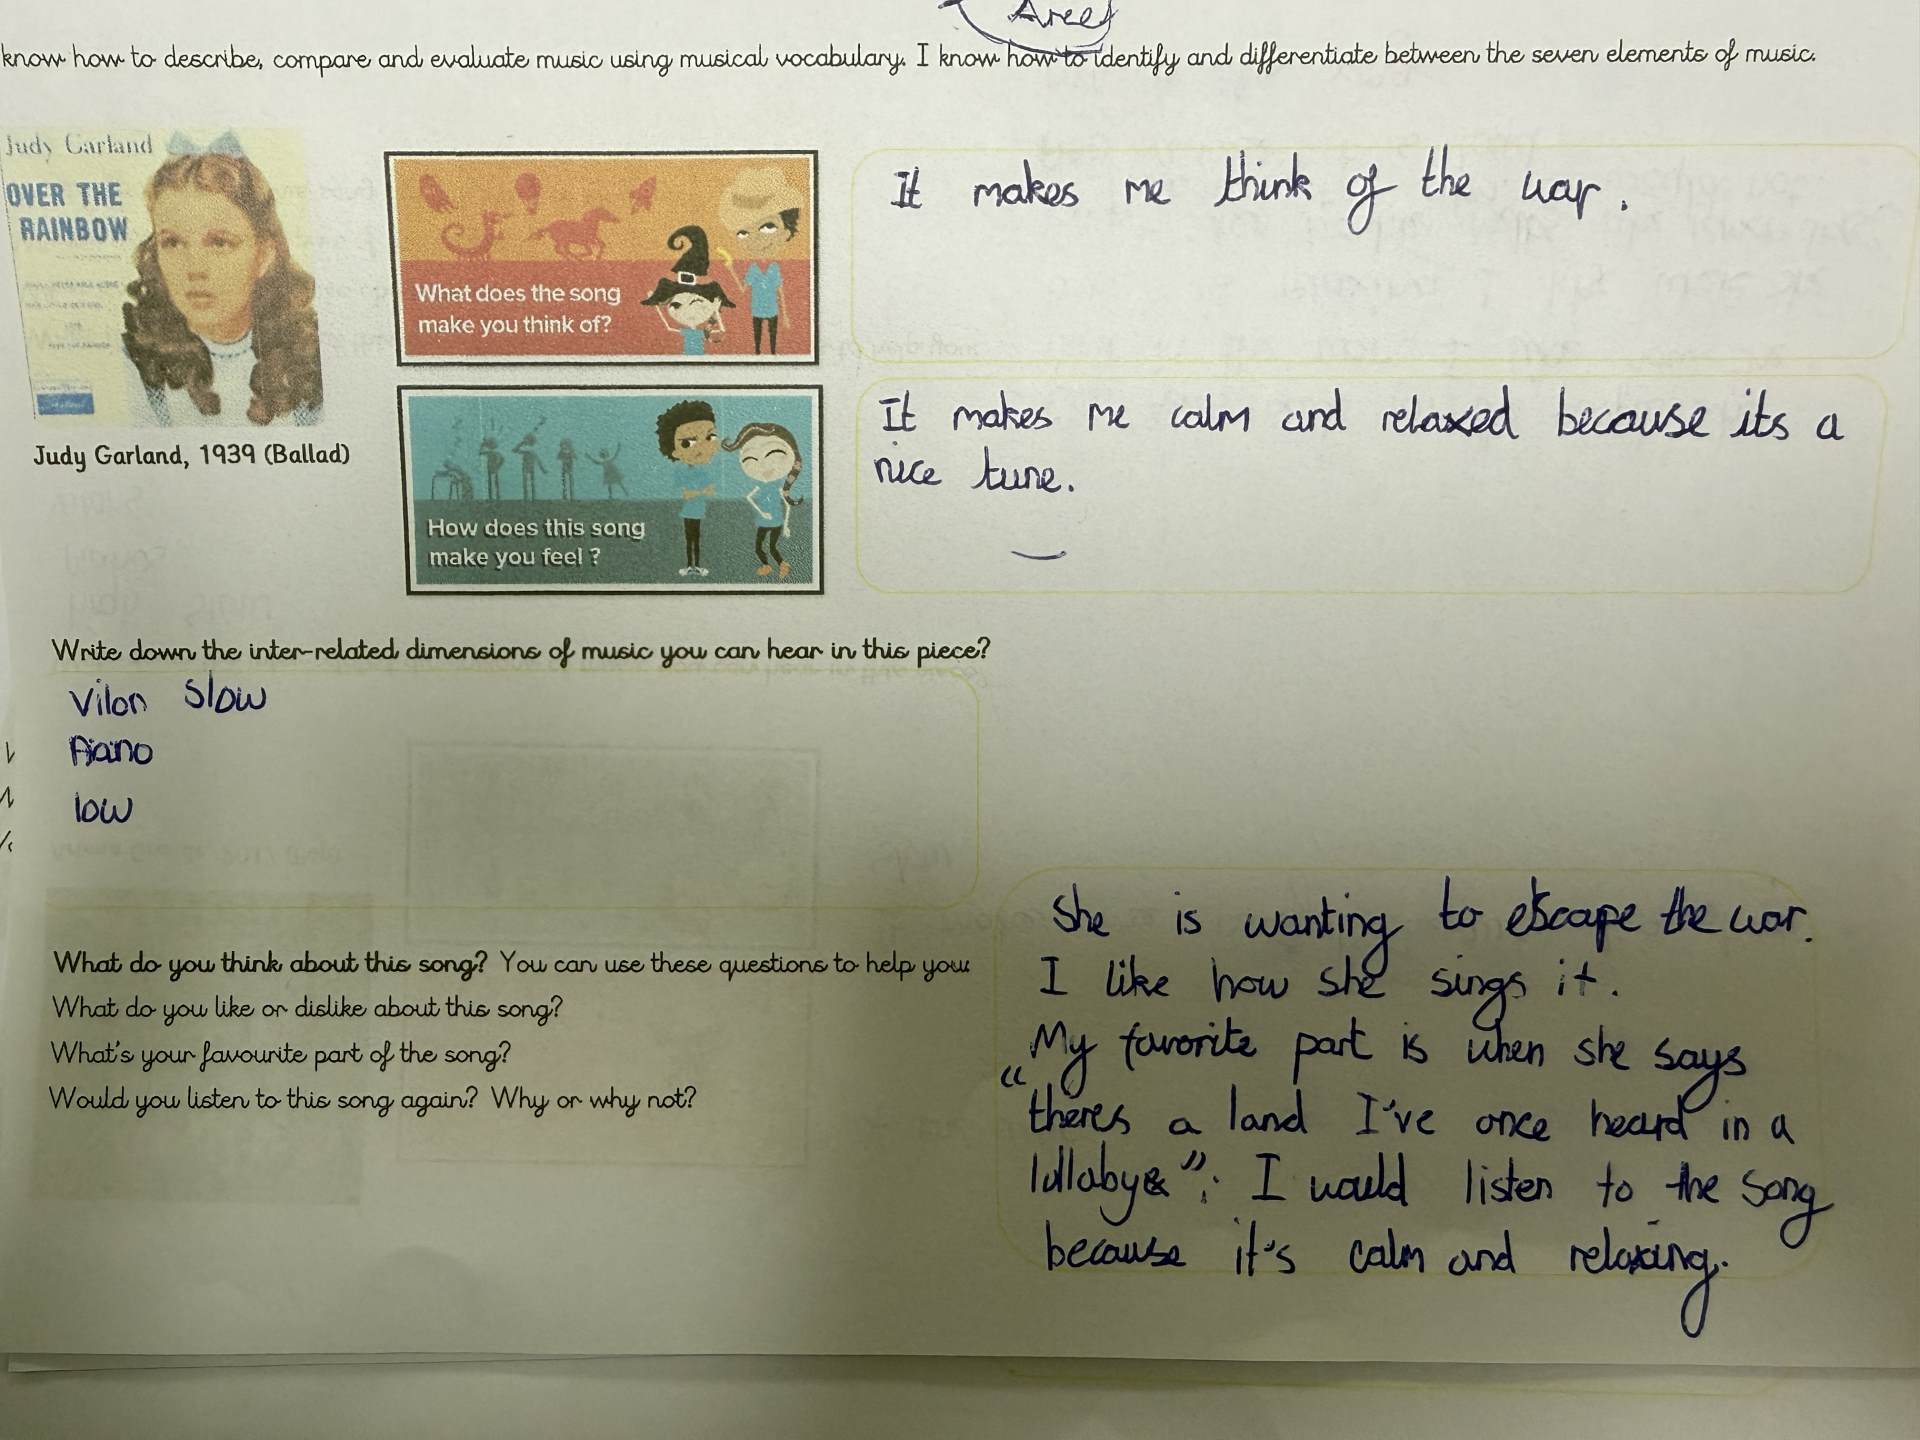 Areej
know how to describe, compare and evaluate music using musical vocabulary. I know how to identify and differentiate between the seven elements of music.
Judy Garland
OVER THE
RAINBOW
What does the song
make you think of?
It makes me think of the war.
Judy Garland, 1939 (Ballad)
How does this song
make you feel ?
It makes me calm and relaxed because its a
nice tune.
Write down the inter-related dimensions of music you can hear in this piece?
Vilon slow
Piano
low
What do you think about this song? You can use these questions to help you:
What do you like or dislike about this song?
What's your favourite part of the song?
Would you listen to this song again? Why or why not?
She is wanting to escape the war.
I like how she sings it.
My favorite part is when she says
"theres a land I've once heard in a
lullabye". I would listen to the song
because it's calm and relaxing.